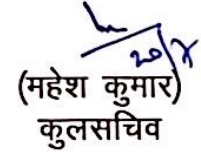 20/4
(महेश कुमार)
कुलसचिव